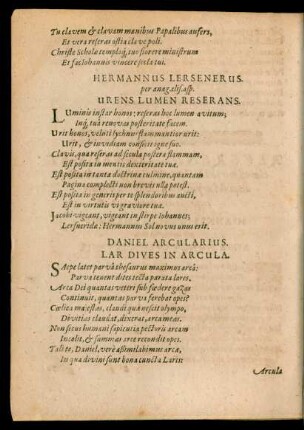 Tu clavem & clavam manibus Papalibus aufers,
Et vera reseras ostia clave poli.
Christe Scholae temploq; tuae serere ministrum
Et fac Iohannis vincere scelestui.
HERMANNUS LERSENERUS.
per anagallisasp.
URENS LUMEN RESERANS.
LUminis instar honos; reseras hoc lumen avitum,
Inq; tuâ renovas posteritate facem.
Urit honos, veluti lychnus flammantior urit:
Urit, & invidiam conficit igne suo.
Clavis, quâ reseras ad secula postera flammam,
Est posita in mentis dexteritate tuae.
Est posita in tanta doctrinae culmine, quantam
Pagina complecti non brevis ulla potest.
Est posita in generis per te splendoribus aucti,
Est in virtutis vigra virere tuae.
Jacobi vigeant, vigeant in stirpe Iohannes,
Lersneridae: Hermannus Sol novus unus erit.
DANIEL ARCULARIUS.
LAR DIVES IN ARCULA.
SAepe later parvâ thesaurus maximus arcâ:
Parva tenent dites tecta parata lares.
Arca Dei quantas vetere sub foedere gazas
Continuit, quantas parva ferebat opes?
Coelica majestas, claudi quae nescit olympo,
Divitias claudat, dixerat, arca meas.
Non secus humani sapientia pectoris arcam
Incolit, & summas arte recondit opes.
Taliter, Daniel, vere assimilabimur arcae,
In qua divini sunt bona cuncta Laris:
Arcula